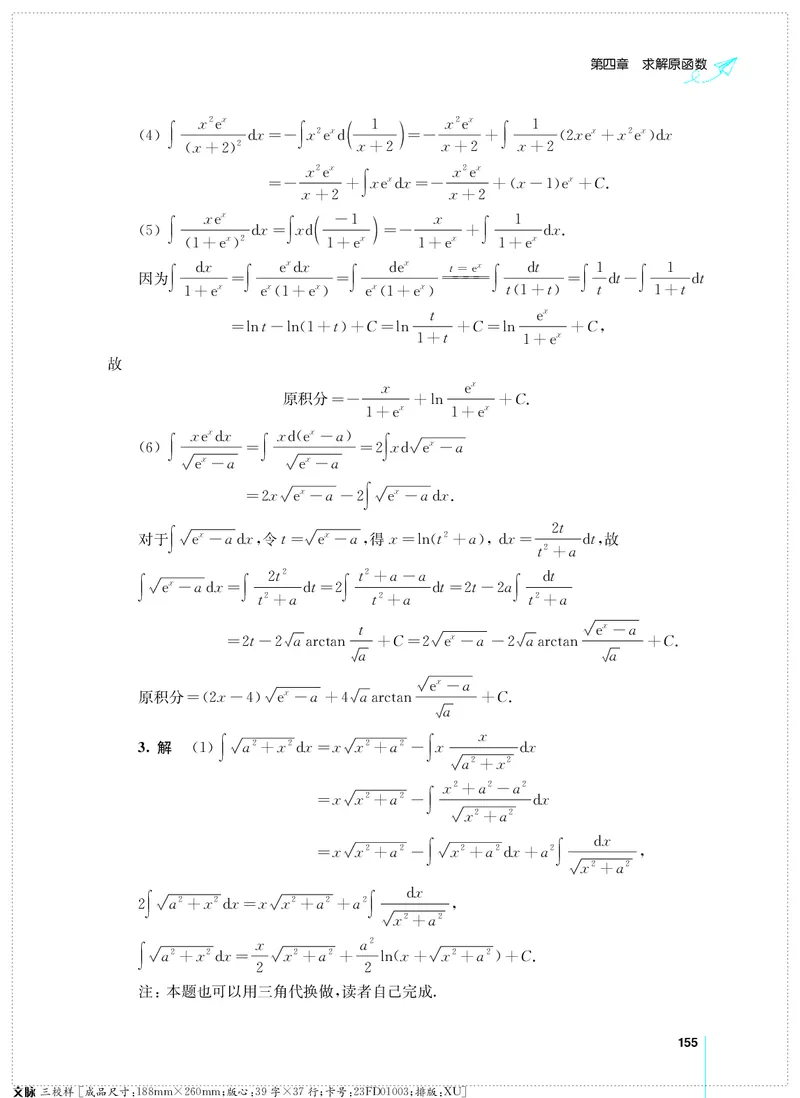 第四章 求解原函数
(4) ∫ x²eˣ/(x+2)² dx = −∫x²eˣd(1/(x+2)) = − x²eˣ/(x+2) + ∫ 1/(x+2) (2xeˣ+x²eˣ)dx
= − x²eˣ/(x+2) + ∫xeˣdx = − x²eˣ/(x+2) + (x−1)eˣ+C.
(5) ∫ xeˣ/(1+eˣ)² dx = ∫xd(−1/(1+eˣ)) = − x/(1+eˣ) + ∫ 1/(1+eˣ) dx.
因为∫ dx/(1+eˣ) = ∫ eˣdx/(eˣ(1+eˣ)) = ∫ deˣ/(eˣ(1+eˣ)) ==(t=eˣ)== ∫ dt/(t(1+t)) = ∫ 1/t dt − ∫ 1/(1+t) dt
=lnt−ln(1+t)+C=ln t/(1+t) +C=ln eˣ/(1+eˣ) +C,
故
原积分=− x/(1+eˣ) +ln eˣ/(1+eˣ) +C.
(6) ∫ xeˣdx/√(eˣ−a) = ∫ xd(eˣ−a)/√(eˣ−a) = 2∫xd√(eˣ−a)
=2x√(eˣ−a) −2∫√(eˣ−a)dx.
对于∫√(eˣ−a)dx,令 t=√(eˣ−a),得 x=ln(t²+a), dx= 2t/(t²+a) dt,故
∫√(eˣ−a)dx=∫ 2t²/(t²+a) dt=2∫ (t²+a−a)/(t²+a) dt=2t−2a∫ dt/(t²+a)
=2t−2√a arctan t/√a +C=2√(eˣ−a) −2√a arctan √(eˣ−a)/√a +C.
原积分=(2x−4)√(eˣ−a) +4√a arctan √(eˣ−a)/√a +C.
3. 解 (1) ∫√(a²+x²)dx=x√(x²+a²) −∫x x/√(a²+x²) dx
=x√(x²+a²) −∫ (x²+a²−a²)/√(x²+a²) dx
=x√(x²+a²) −∫√(x²+a²)dx+a²∫ dx/√(x²+a²),
2∫√(a²+x²)dx=x√(x²+a²) +a²∫ dx/√(x²+a²),
∫√(a²+x²)dx= x/2 √(x²+a²) + a²/2 ln(x+√(x²+a²))+C.
注: 本题也可以用三角代换做,读者自己完成.
155
文脉 三校样 [成品尺寸:188mm×260mm;版心:39 字×37 行;卡号:23FD01003;排版:XU]